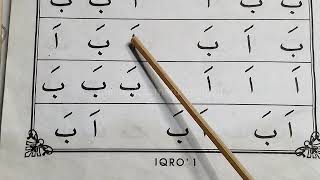 بَ بَ اَ اَ بَ بَ
بَ اَ بَ اَ بَ اَ
اَ اَ اَ بَ بَ بَ
اَ بَ اَ بَ اَ بَ
IQRO' 1